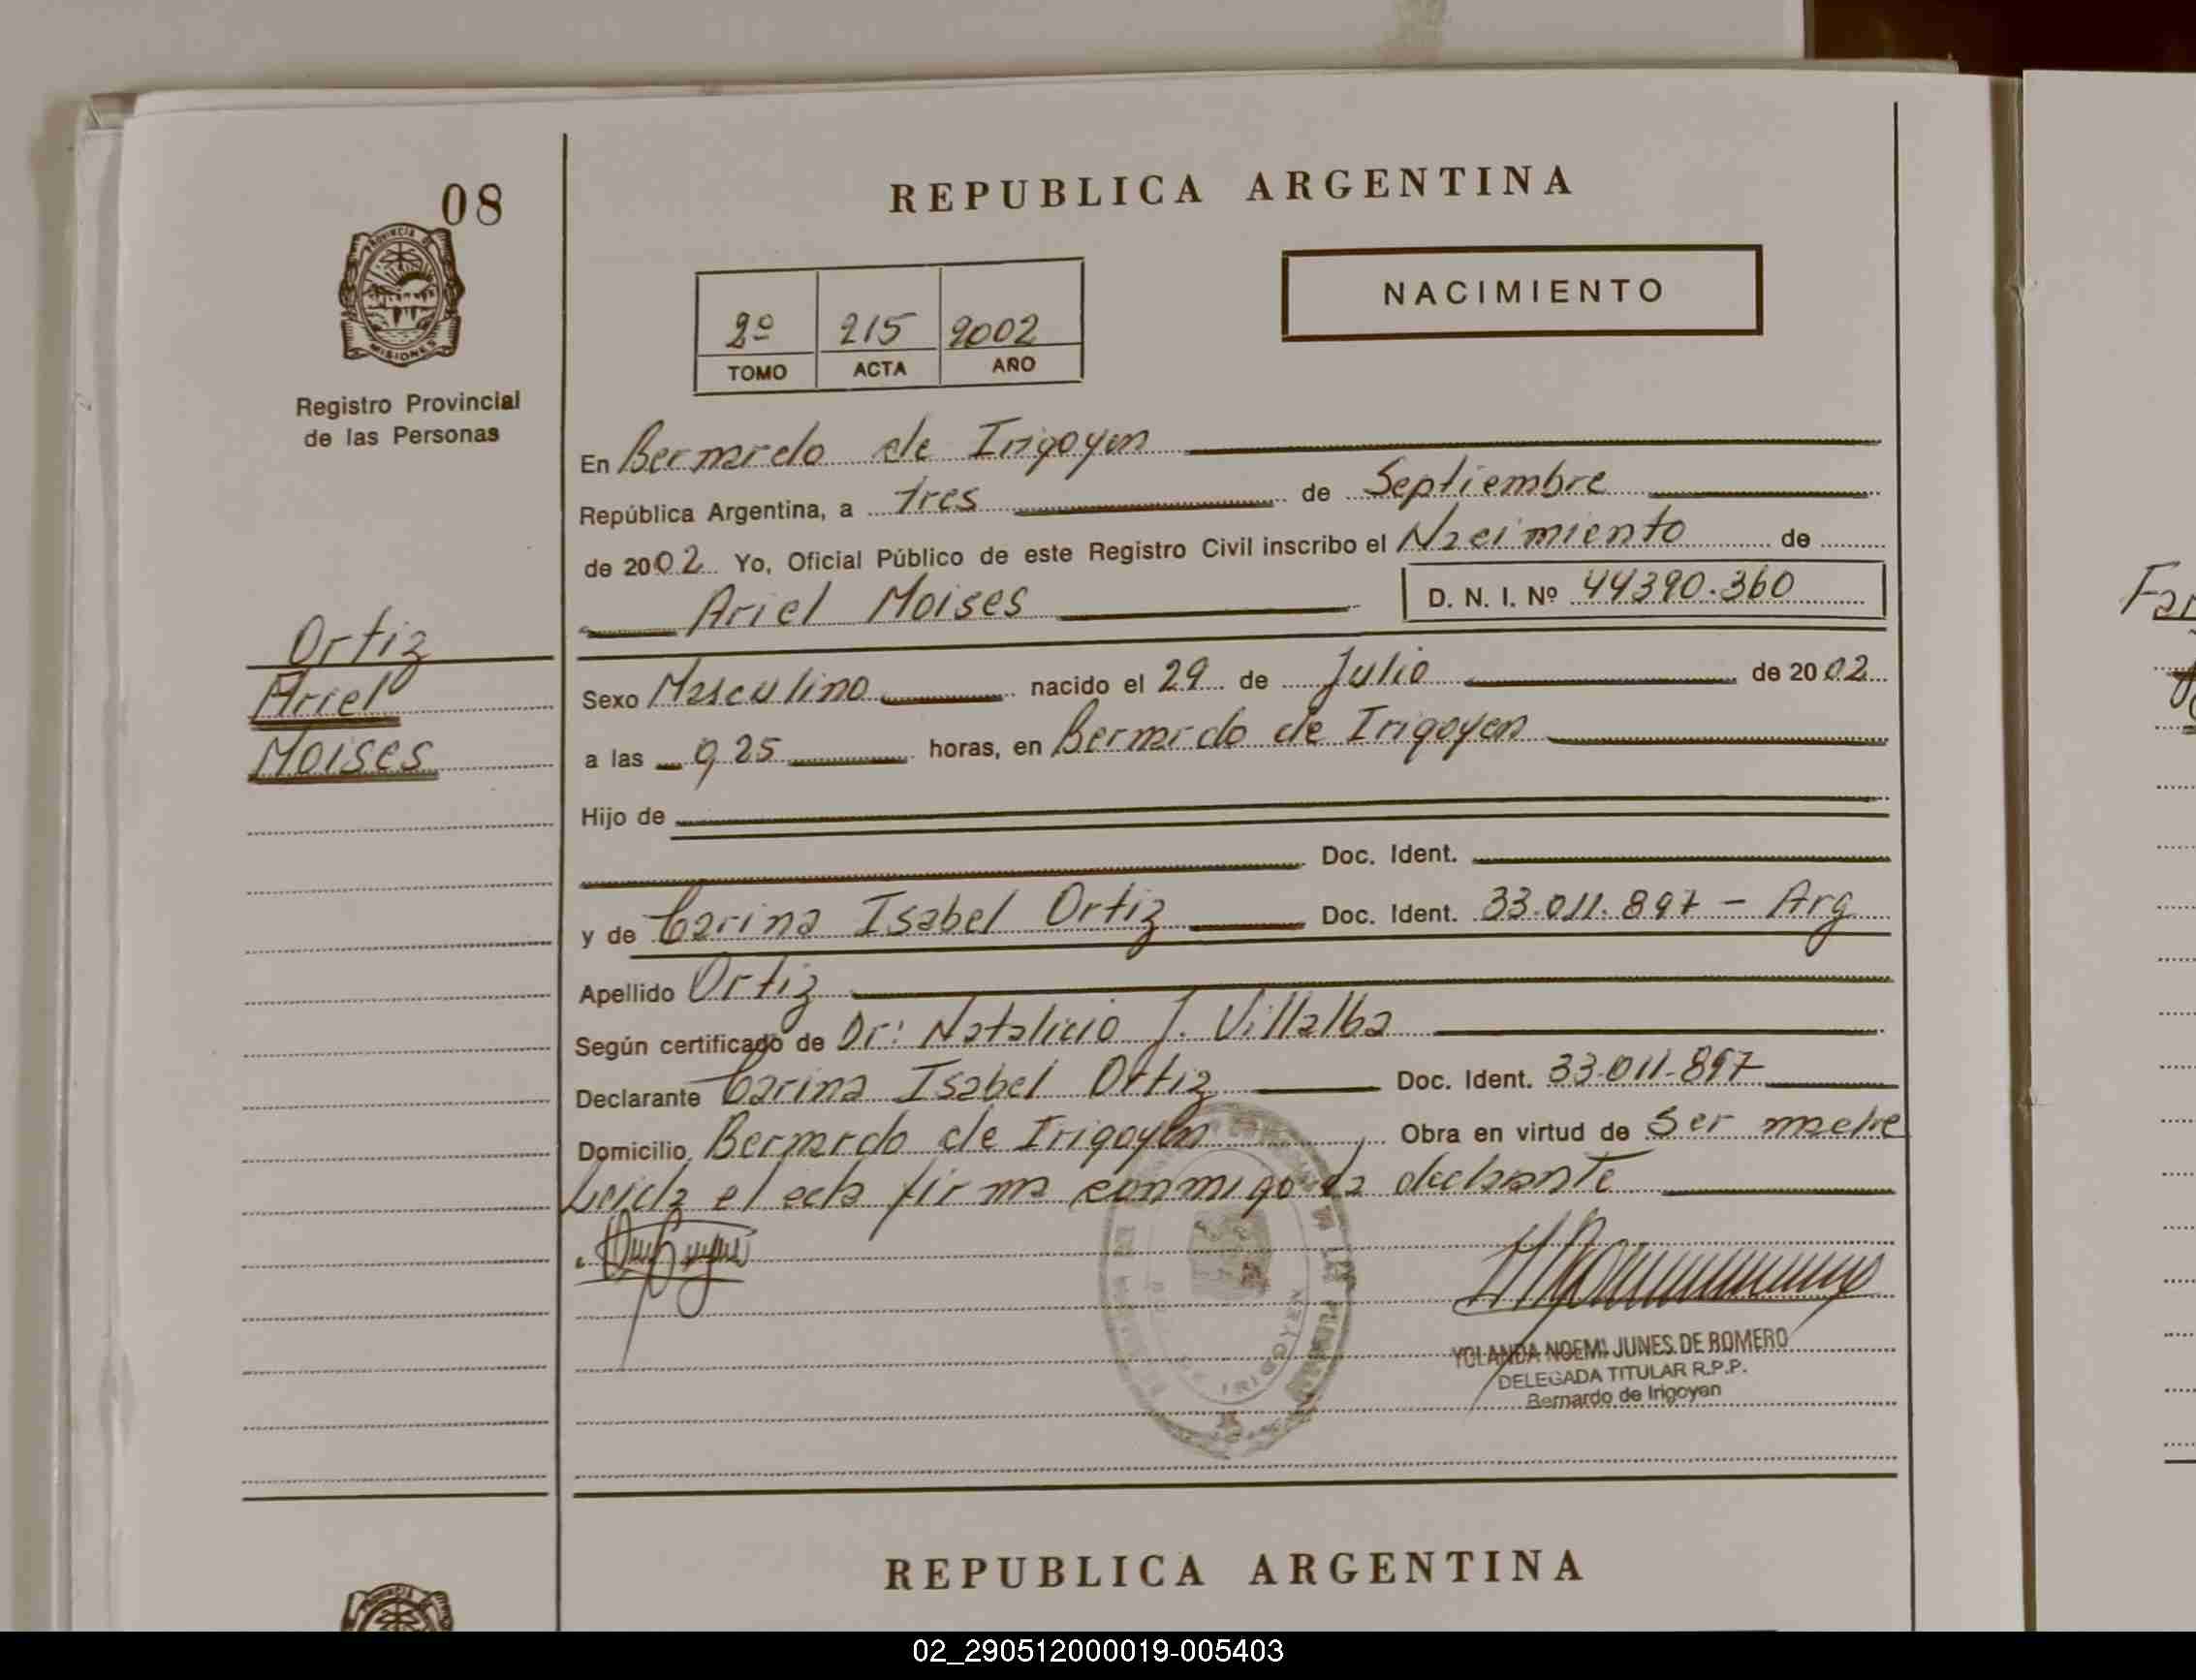 08
PROVINCIA DE
MISIONES
Registro Provincial
de las Personas
Ortiz
Ariel
Moises
REPUBLICA ARGENTINA
NACIMIENTO
2º 215 2002
TOMO ACTA AÑO
En Bernardo de Irigoyen
República Argentina, a tres de Septiembre
de 2002 Yo, Oficial Público de este Registro Civil inscribo el Nacimiento de
Ariel Moises D. N. I. Nº 44390.360
Sexo Masculino nacido el 29 de Julio de 2002
a las 9,25 horas, en Bernardo de Irigoyen
Hijo de
Doc. Ident.
y de Carina Isabel Ortiz Doc. Ident. 33.011.897 - Arg
Apellido Ortiz
Según certificado de Dr: Natalicio J. Villalba
Declarante Carina Isabel Ortiz Doc. Ident. 33.011.897
Domicilio Bernardo de Irigoyen Obra en virtud de ser madre
Leida el acta firma conmigo la declarante
YOLANDA NOEMI JUNES DE ROMERO
DELEGADA TITULAR R.P.P.
Bernardo de Irigoyen
REPUBLICA ARGENTINA
02_290512000019-005403